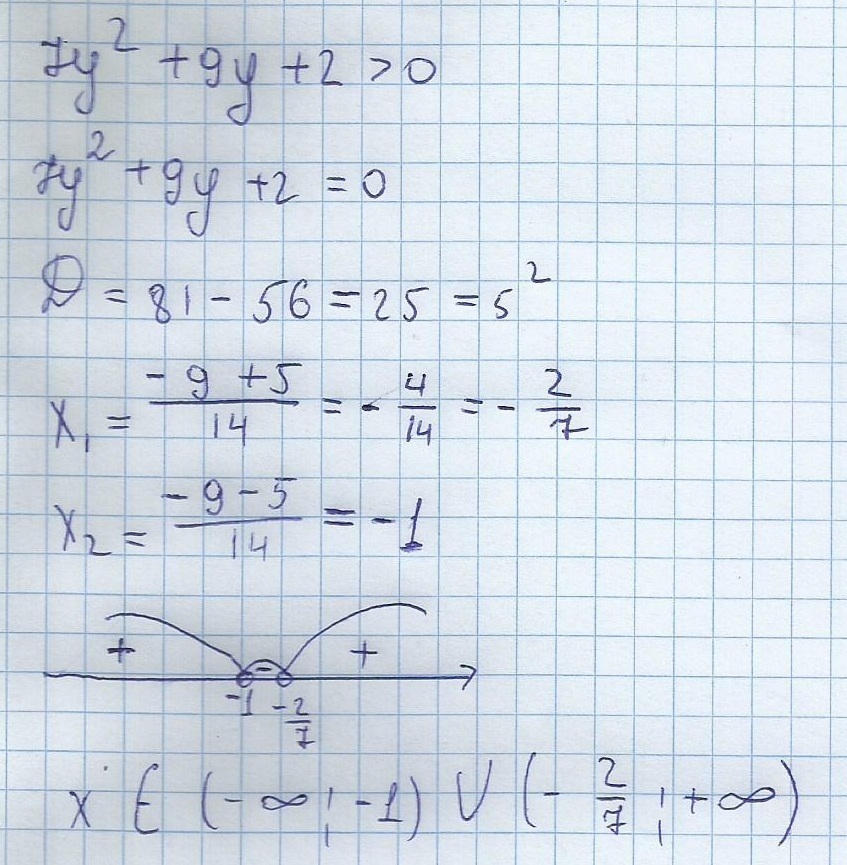 7y² + 9y + 2 > 0
7y² + 9y + 2 = 0
D = 81 - 56 = 25 = 5²
x₁ = (-9 + 5)/14 = -4/14 = -2/7
x₂ = (-9 - 5)/14 = -1
+ - +
-1 -2/7
x ∈ (-∞; -1) ∪ (-2/7; +∞)